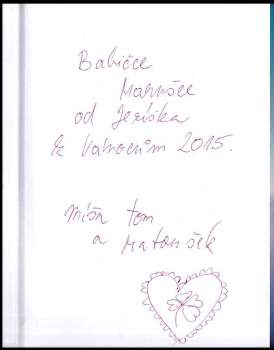 Babičce
Marušce
od Ježíška
k Vánocům 2015.
Míša Tom
a Matoušek